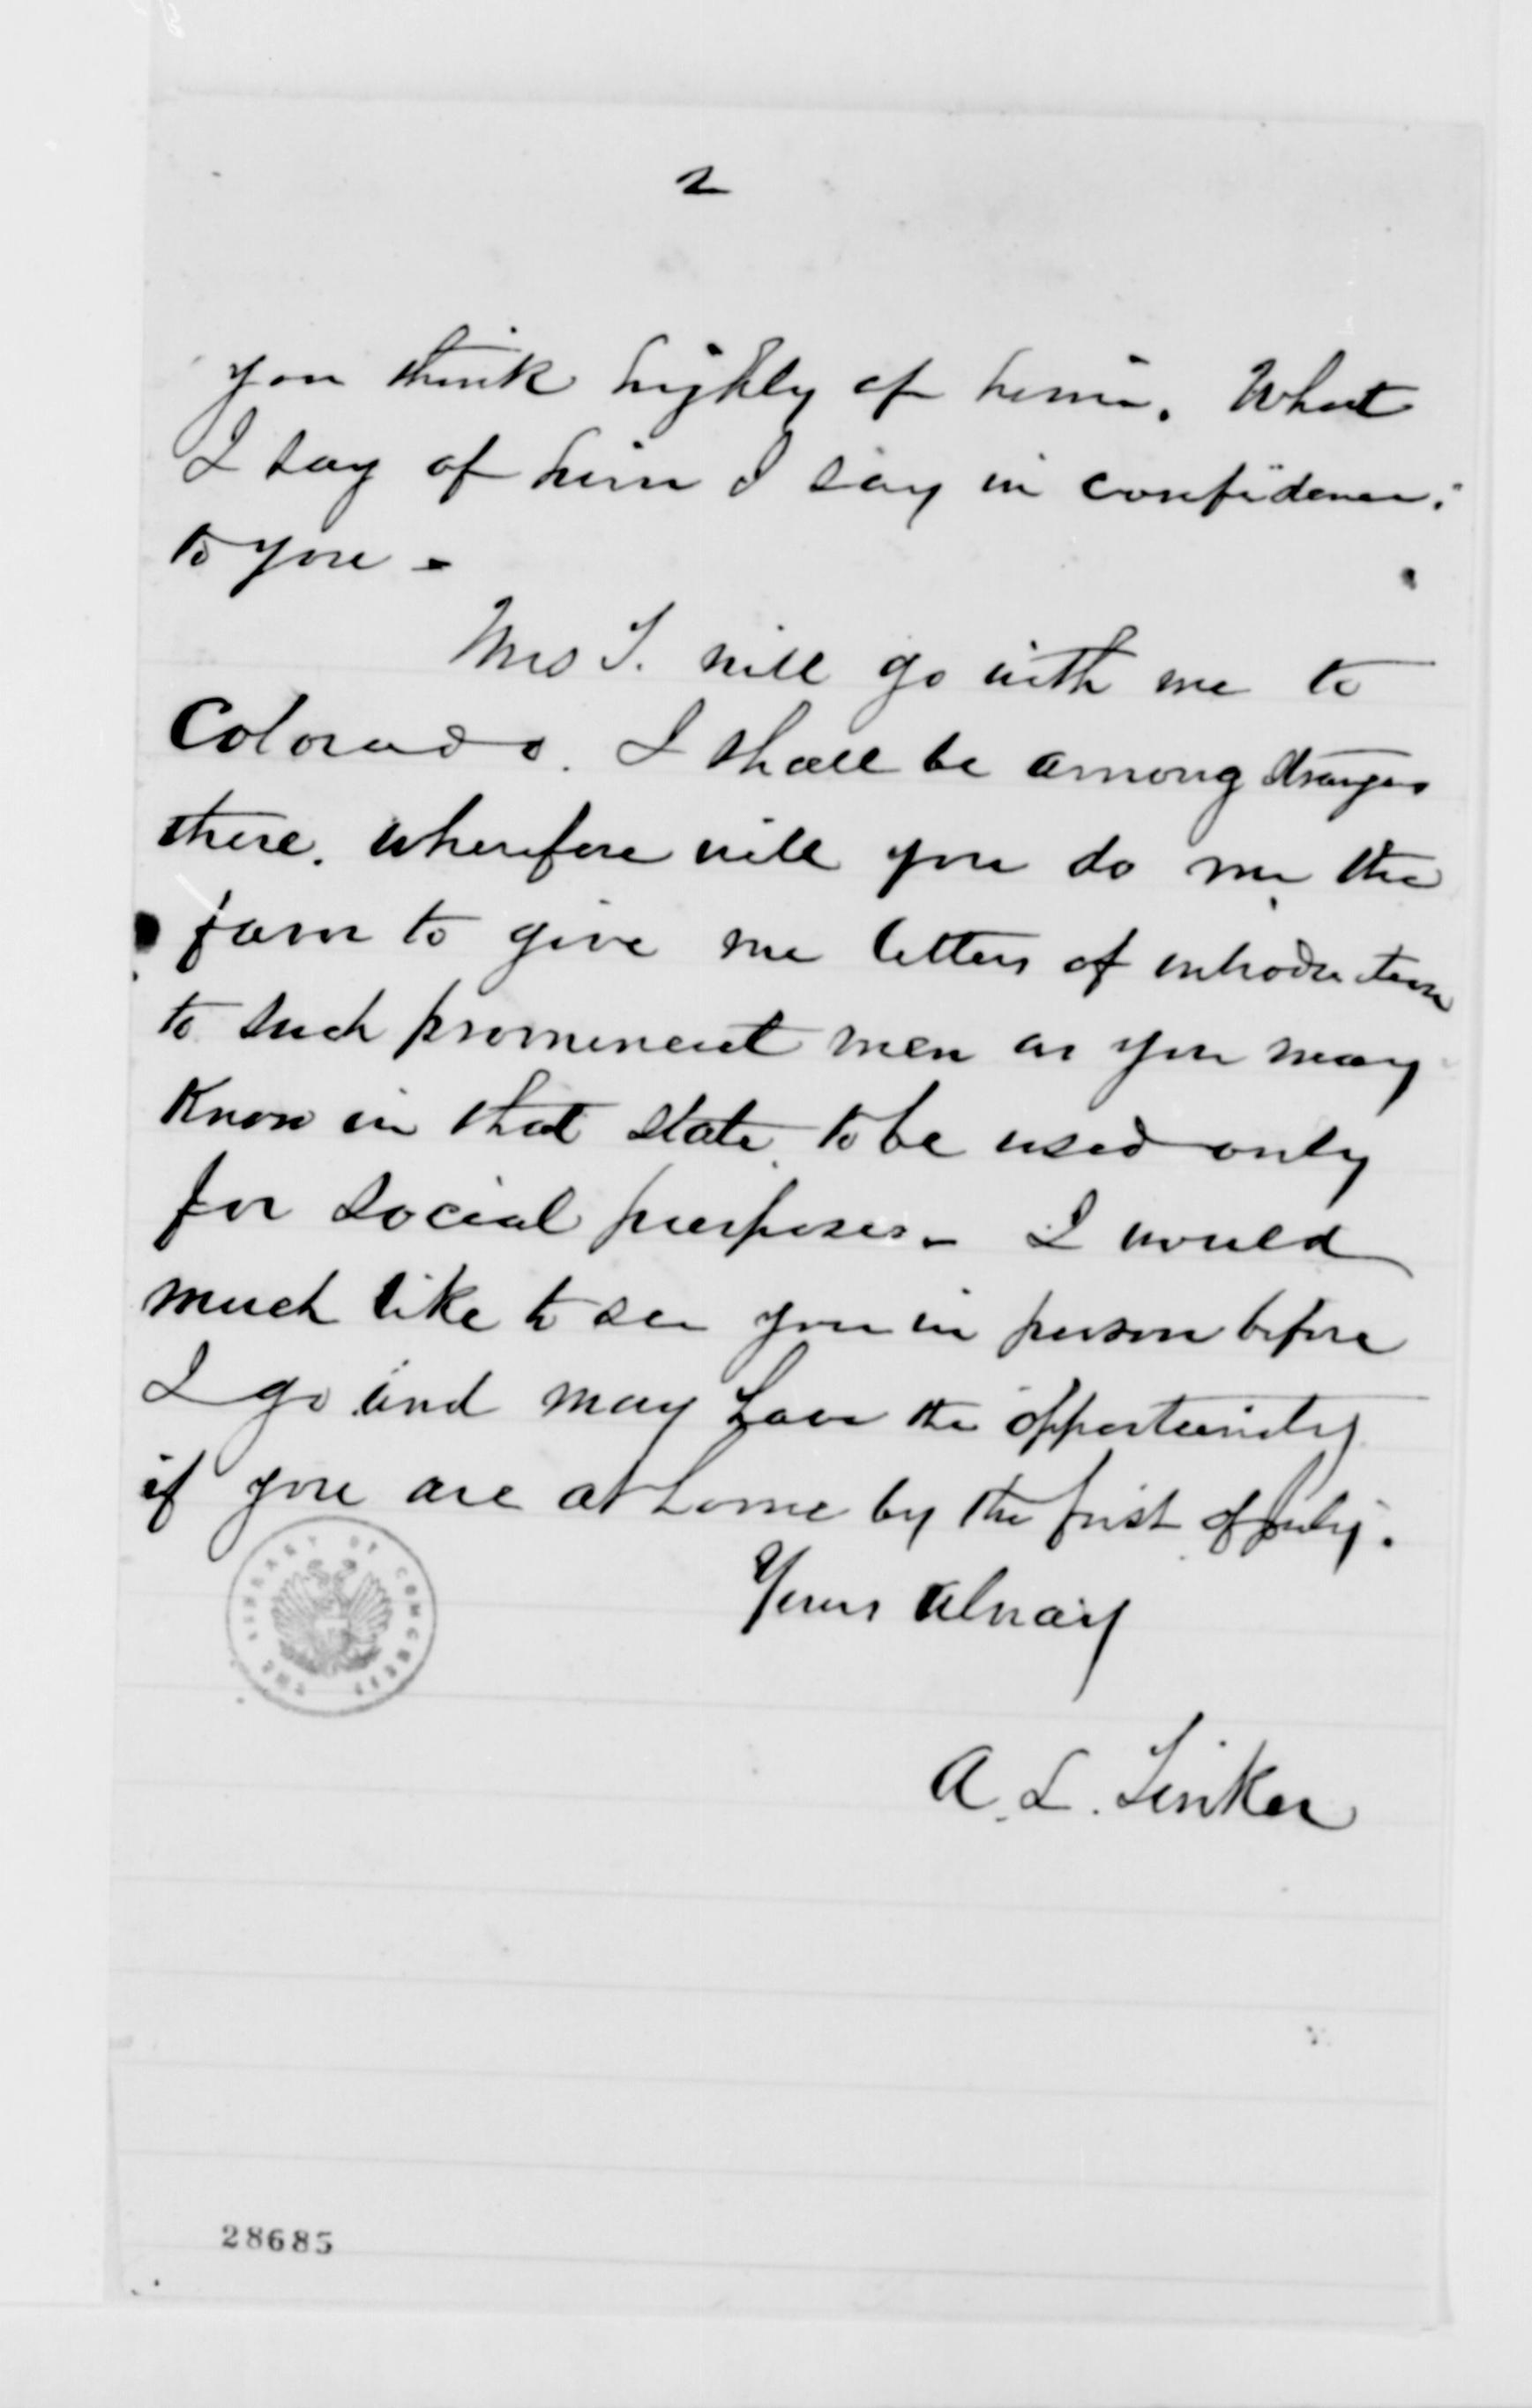 2
you think highly of him. What
I say of him I say in confidence.
to you -
Mrs T. will go with me to
Colorado. I shall be among strangers
there. Wherefore will you do me the
favor to give me letters of introduction
to such prominent men as you may
know in that state to be used only
for social purposes - I would
much like to see you in person before
I go and may have the opportunity
if you are at home by the first of July.
Yours alway
A. L. Tinker
THE LIBRARY OF CONGRESS
28685